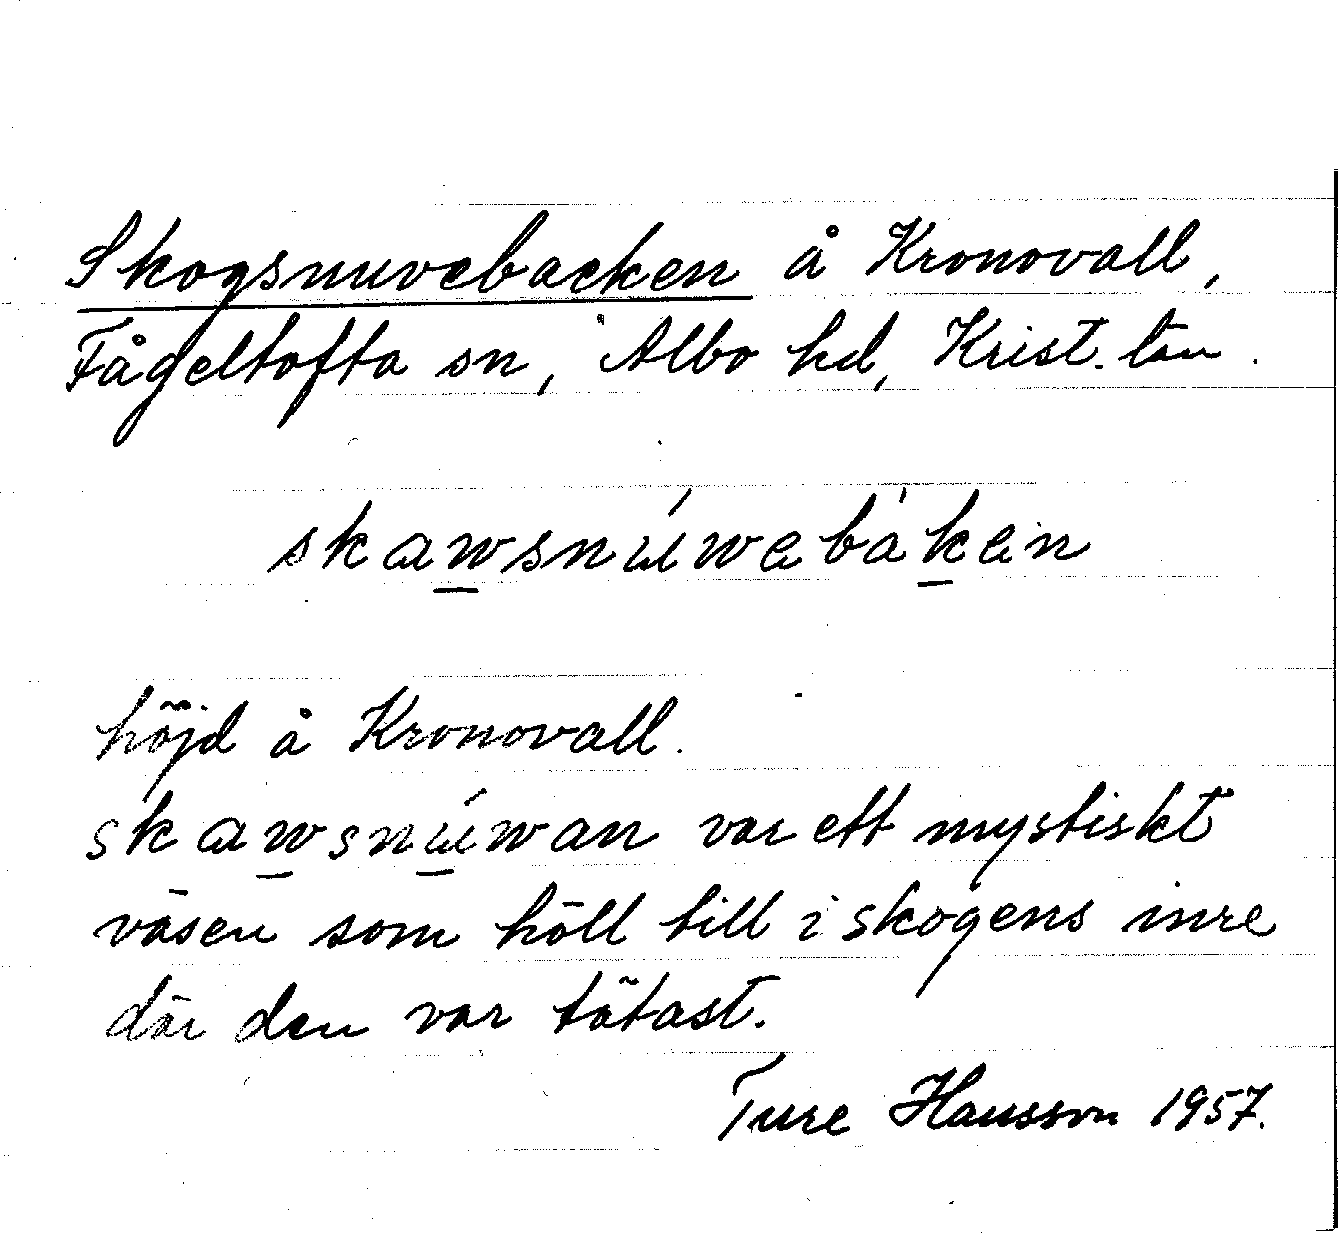 Skogsnuvebacken å Kronovall,
Fågeltofta sn, Albo hd, Krist. län.
skawsnúwebàken
höjd å Kronovall.
skawsnúwan var ett mystiskt
väsen som höll till i skogens inre
där den var tätast.
Ture Hansson 1957.